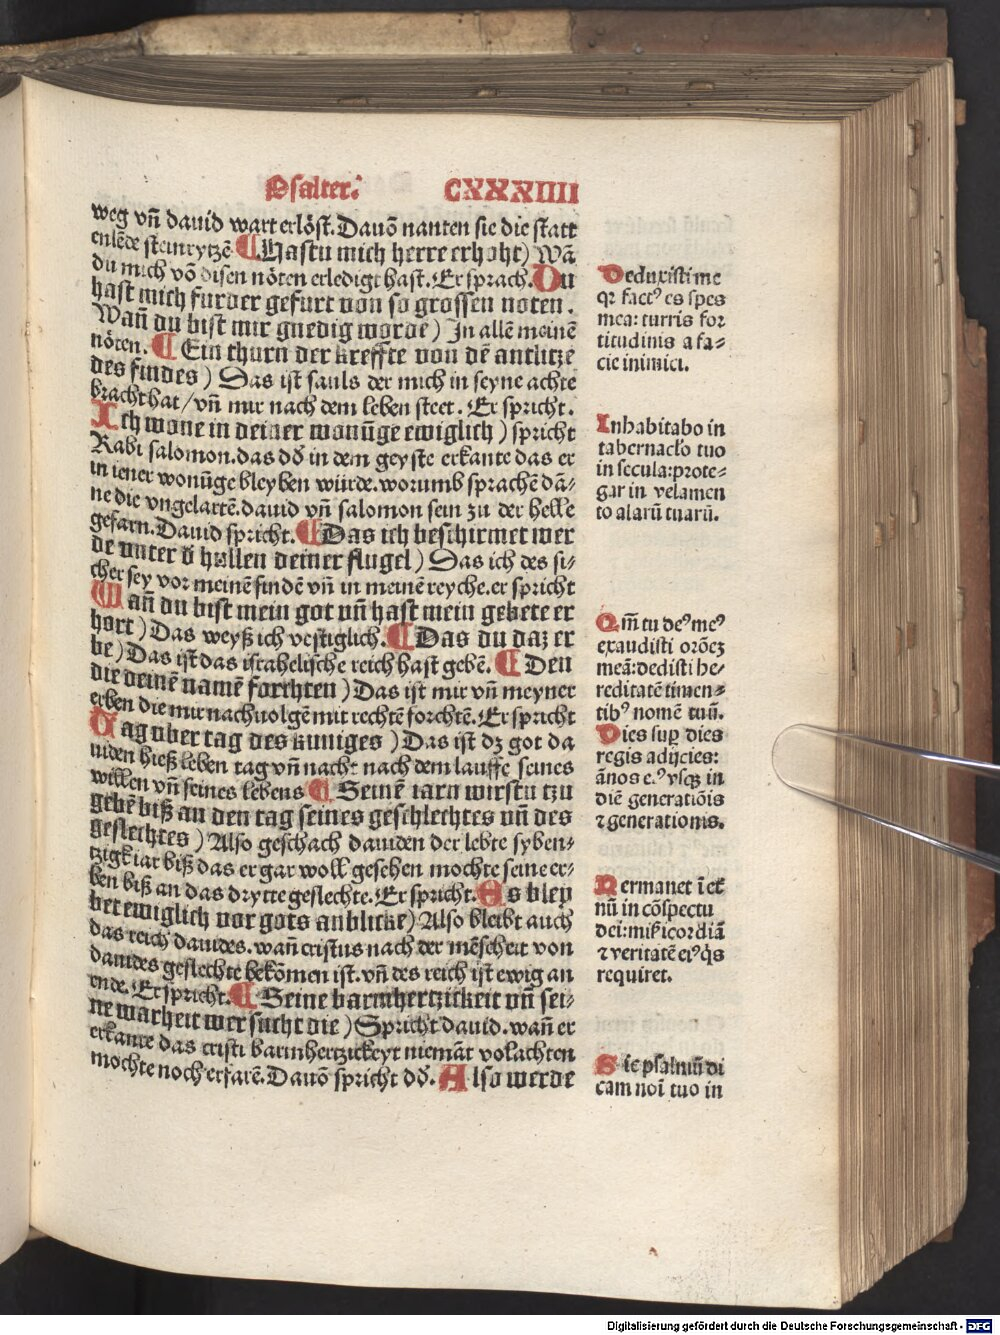 Psalter. CXXXIIII
weg vn̄ dauid wart erlöst. Dauō nanten sie die statt
enlēde steinrytzē ¶ Hastu mich herre erhoht) Wā
du mich vō disen nöten erledigt hast. Er sprach. Du
hast mich furder gefurt von so grossen noten.
Wan̄ du bist mir gnedig wordē) In allē meinē
nöten. ¶ Ein thurn der kreffte von dē antlitze
des findes) Das ist sauls der mich in seyne achte
bracht hat / vn̄ mir nach dem leben steet. Er spricht.
Ich wone in deiner wonūge ewiglich) spricht
Rabi salomon. das dd̄ in dem geyste erkante das er
in iener wonūge bleyben würde. worumb sprachē dā⸗
ne die vngelartē. dauid vn̄ salomon sein zu der helle
gefarn. Dauid spricht. ¶ Das ich beschirmet wer
de vnter d̄ hullen deiner flugel) Das ich des si⸗
cher sey vor meinē findē vn̄ in meinē reyche. er spricht
Wan̄ du bist mein got vn̄ hast mein gebete er
hort) Das weyß ich vestiglich. ¶ Das du daz er
be) Das ist das israhelische reich hast gebē. ¶ Den
die deinē namē forchten) Das ist mir vn̄ meyner
erben die mir nachuolgē mit rechtē forchtē. Er spricht
Tag uber tag des kuniges) Das ist dz got da
uiden hieß leben tag vn̄ nacht nach dem lauffe seines
willen vn̄ seines lebens ¶ Seinē iarn wirstu tzu
gebē biß an den tag seines geschlechtes vn̄ des
geslechtes) Also geschach dauiden der lebte syben⸗
tzigk iar biß das er gar woll gesehen mochte seine er⸗
ben biß an das drytte geslechte. Er spricht. Es bley
bet ewiglich vor gots anblicke) Also bleibt auch
das reich dauides. wan̄ cristus nach der mēscheit von
dauides geslechte bekōmen ist. vn̄ des reich ist ewig an
ende. Er spricht. ¶ Seine barmhertzickeit vn̄ sei⸗
ne warheit wer sucht die) Spricht dauid. wan̄ er
erkante das cristi barmhertzickeyt niemāt volachten
mochte noch erfarē. Dauō spricht dd̄. Also werde
Deduxisti me
qꝛ factꝰ es spes
mea: turris for
titudinis a fa⸗
cie inimici.
Inhabitabo in
tabernaclo tuo
in secula: prote⸗
gar in velamen
to alarū tuarū.
Qm̄ tu deꝰ meꝰ
exaudisti orōeꝫ
meā: dedisti he⸗
reditatē timen⸗
tibꝰ nomē tuū.
Dies suꝑ dies
regis adijcies:
ānos eꝰ vsqꝫ in
diē generatiōis
⁊ generationis.
Permanet ī et̉
nū in cōspectu
dei: mīsericordiā
⁊ veritatē eiꝰ q̇s
requiret.
Sic psalmū di
cam noī tuo in
Digitalisierung gefördert durch die Deutsche Forschungsgemeinschaft - DFG